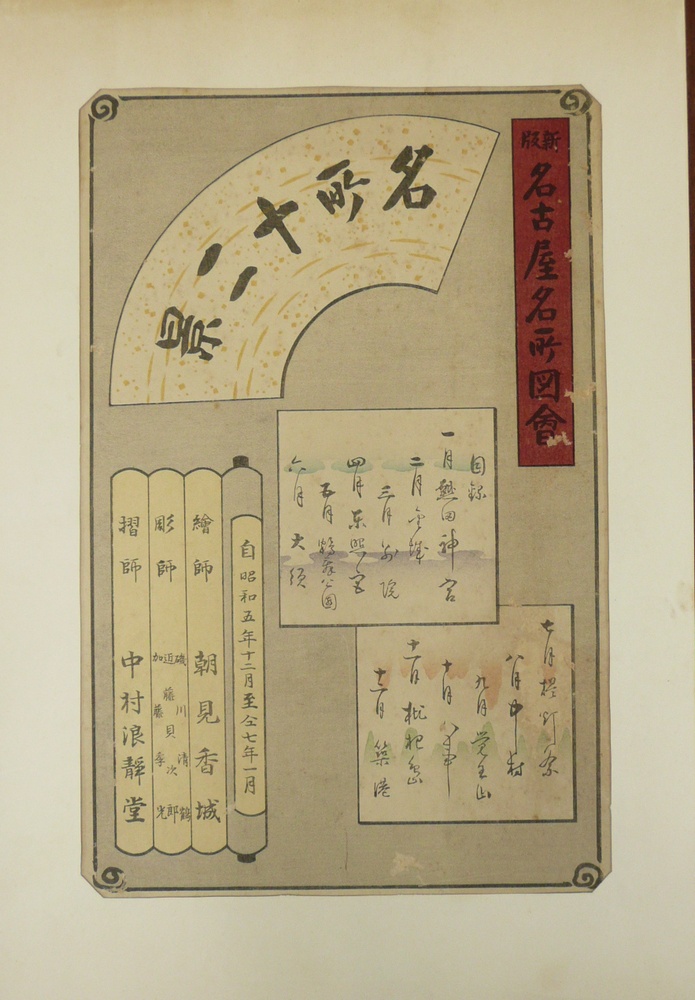 新版
名古屋名所図會
名所十二景
目録
一月 熱田神宮
二月 金城
三月 別院
四月 東照宮
五月 鶴舞公園
六月 大須
七月 提灯祭
八月 中村
九月 覚王山
十月 八事
十一月 枇杷島
十二月 築港
自昭和五年十二月至仝七年一月
繪師 朝見香城
彫師 磯川清鶴
近藤貝次郎
加藤季光
摺師 中村浪靜堂